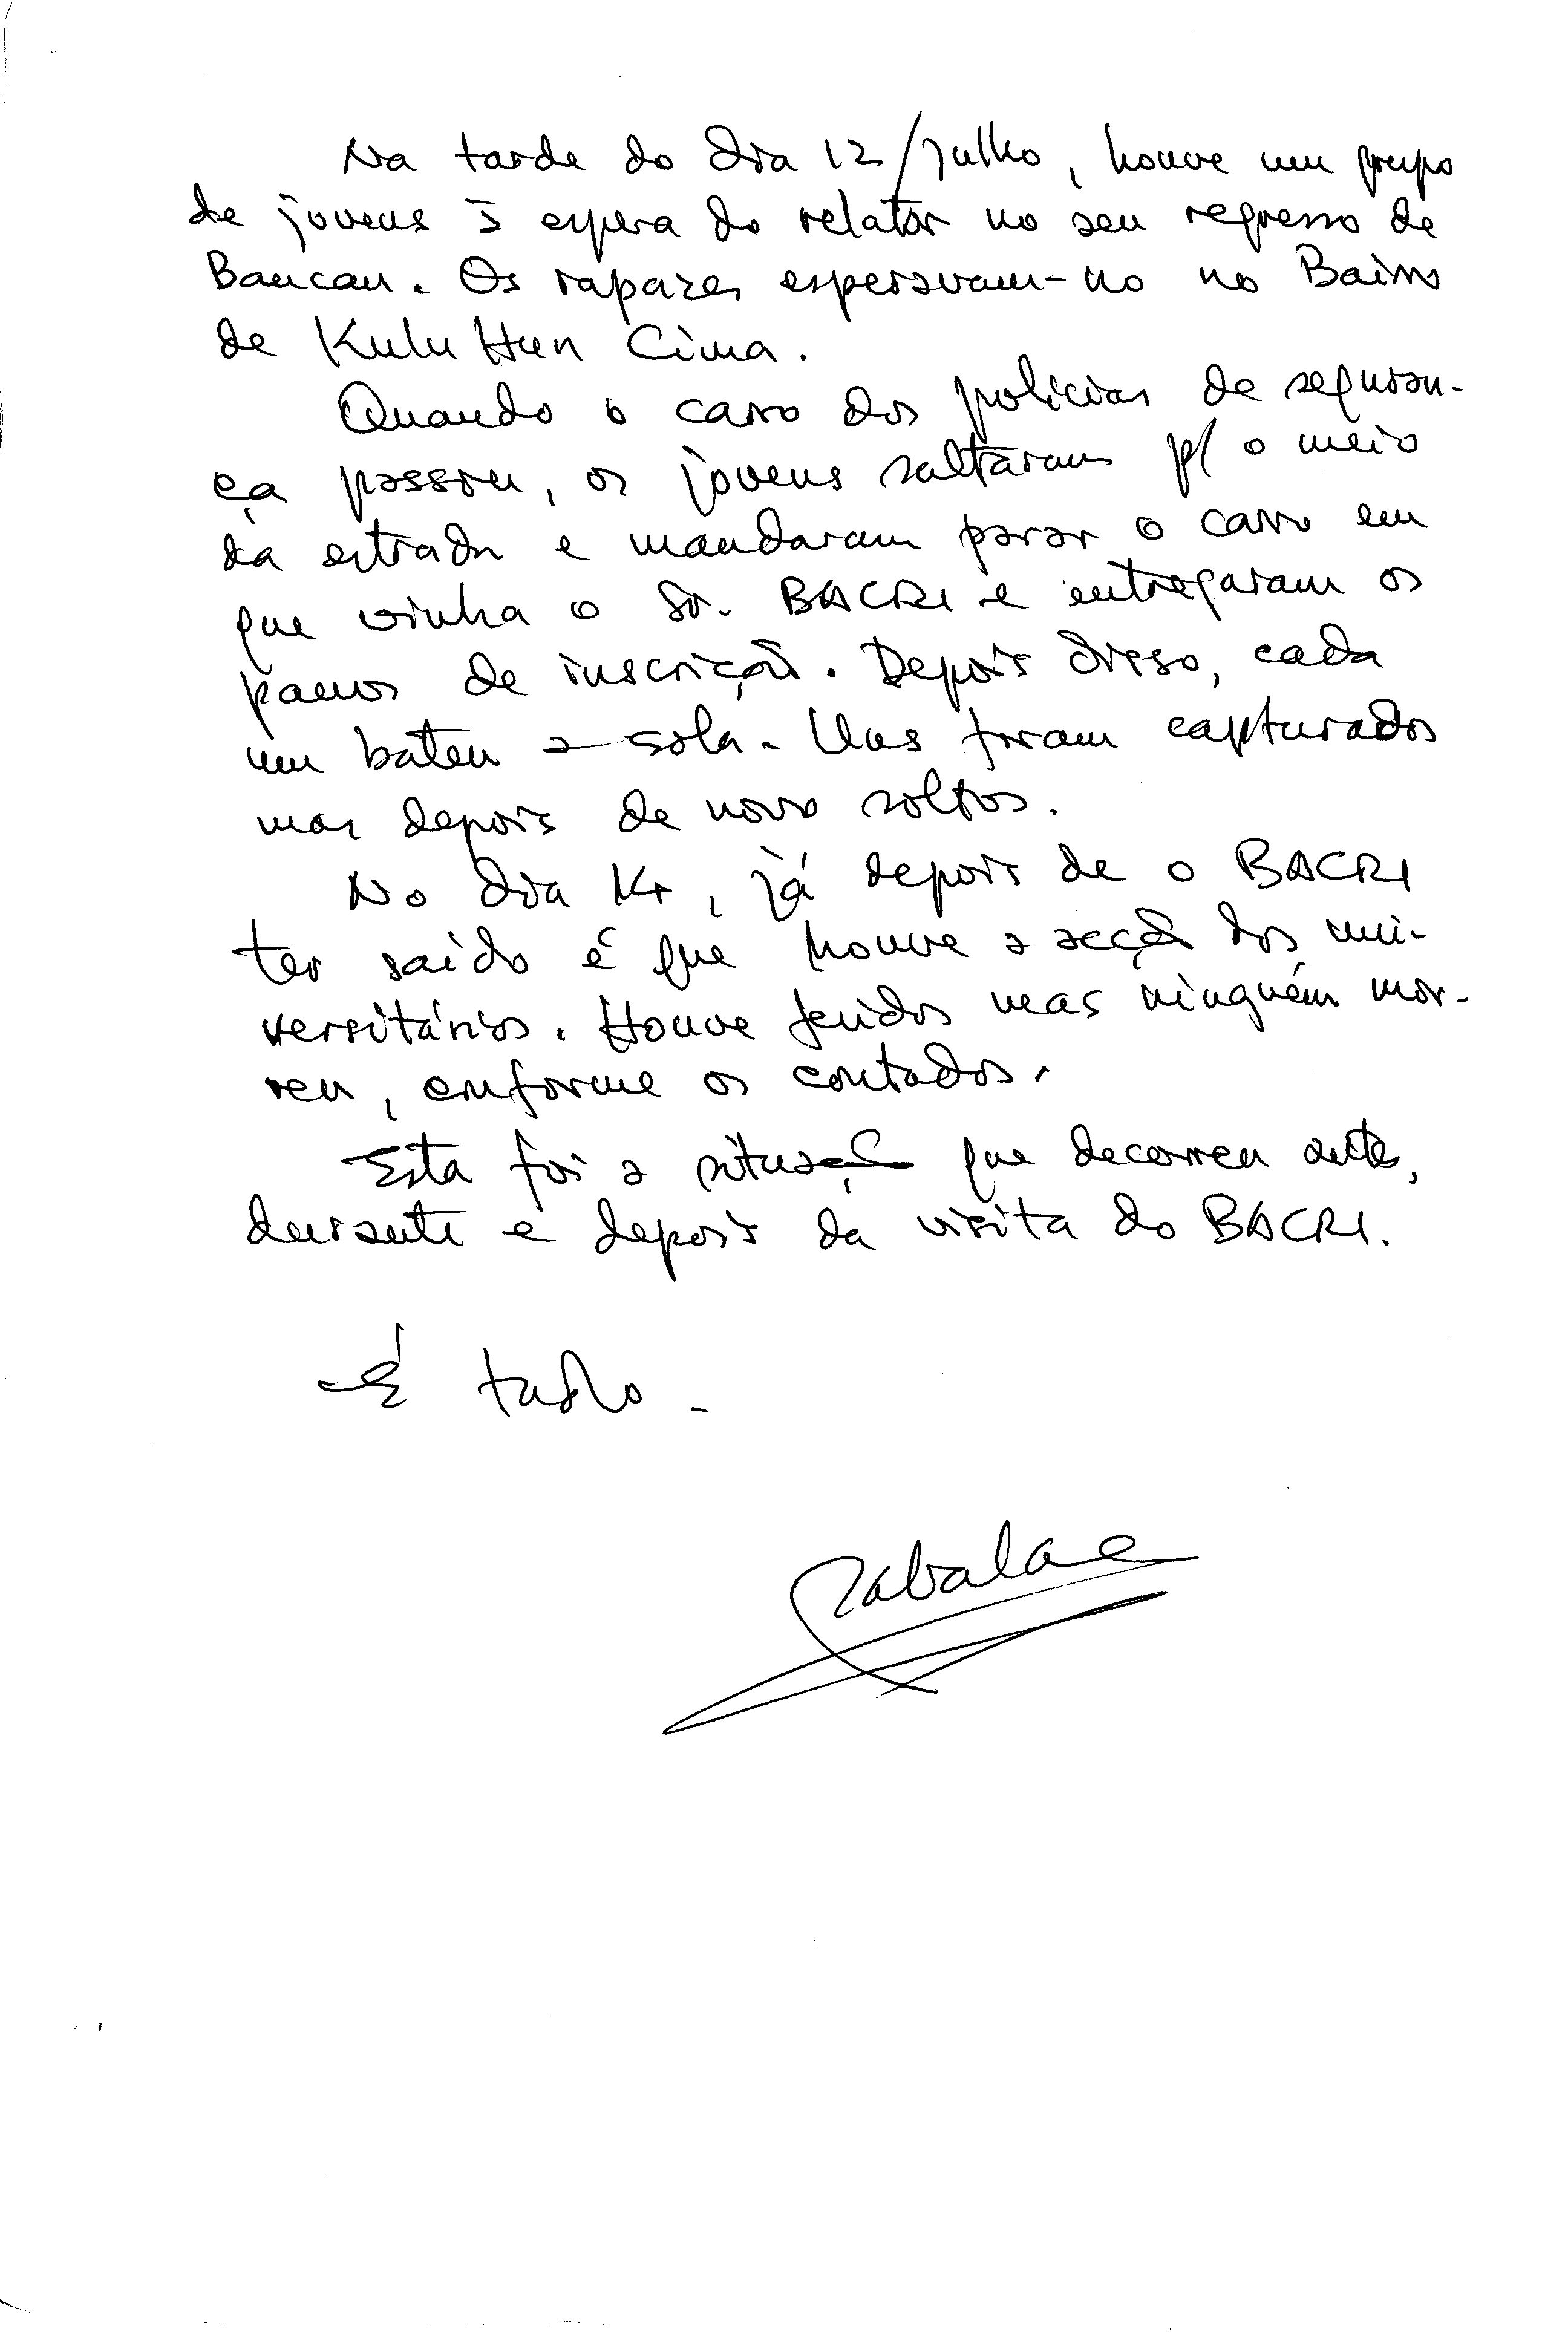 Na tarde do dia 12/julho, houve um grupo
de jovens à espera do relator no seu regresso de
Baucau. Os rapazes esperavam-no no Bairro
de Kulu Hun Cima.
Quando o carro dos polícias de seguran-
ça passou, os jovens saltaram p/ o meio
da estrada e mandaram parar o carro em
que vinha o Sr. BACRE e entregaram os
panos de inscrição. Depois disso, cada
um bateu a sola. Uns foram capturados
mas depois de novo soltos.
No dia 14, já depois de o BACRE
ter saído é que houve a acção dos uni-
versitários. Houve feridos mas ninguém mor-
reu, conforme os contados.
Esta foi a situação que decorreu antes,
durante e depois da visita do BACRE.
É tudo.